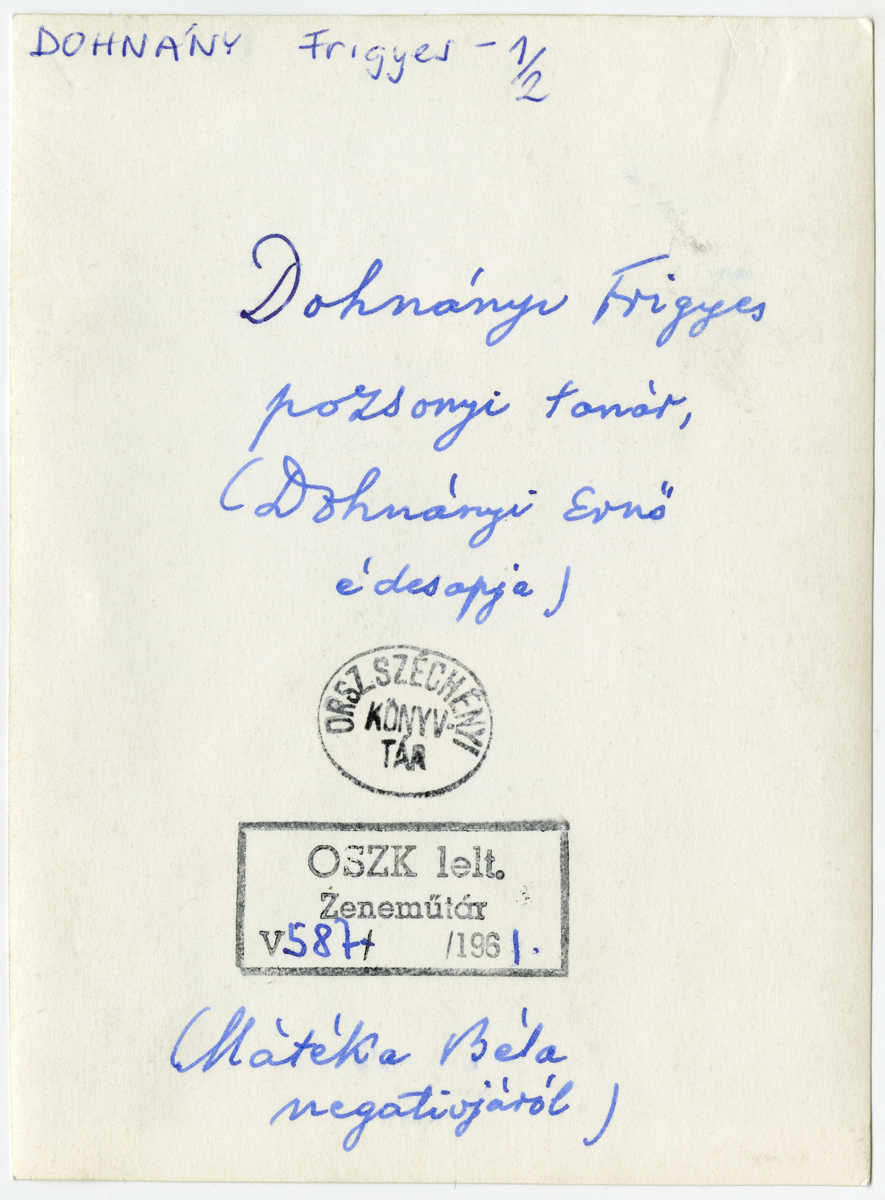 DOHNÁNY Frigyes - 1/2
Dohnányi Frigyes
pozsonyi tanár,
(Dohnányi Ernő
édesapja)
ORSZ. SZÉCHÉNYI
KÖNYV-
TÁR
OSZK lelt.
Zeneműtár
V587/ /1961.
(Mátéka Béla
negativjáról)